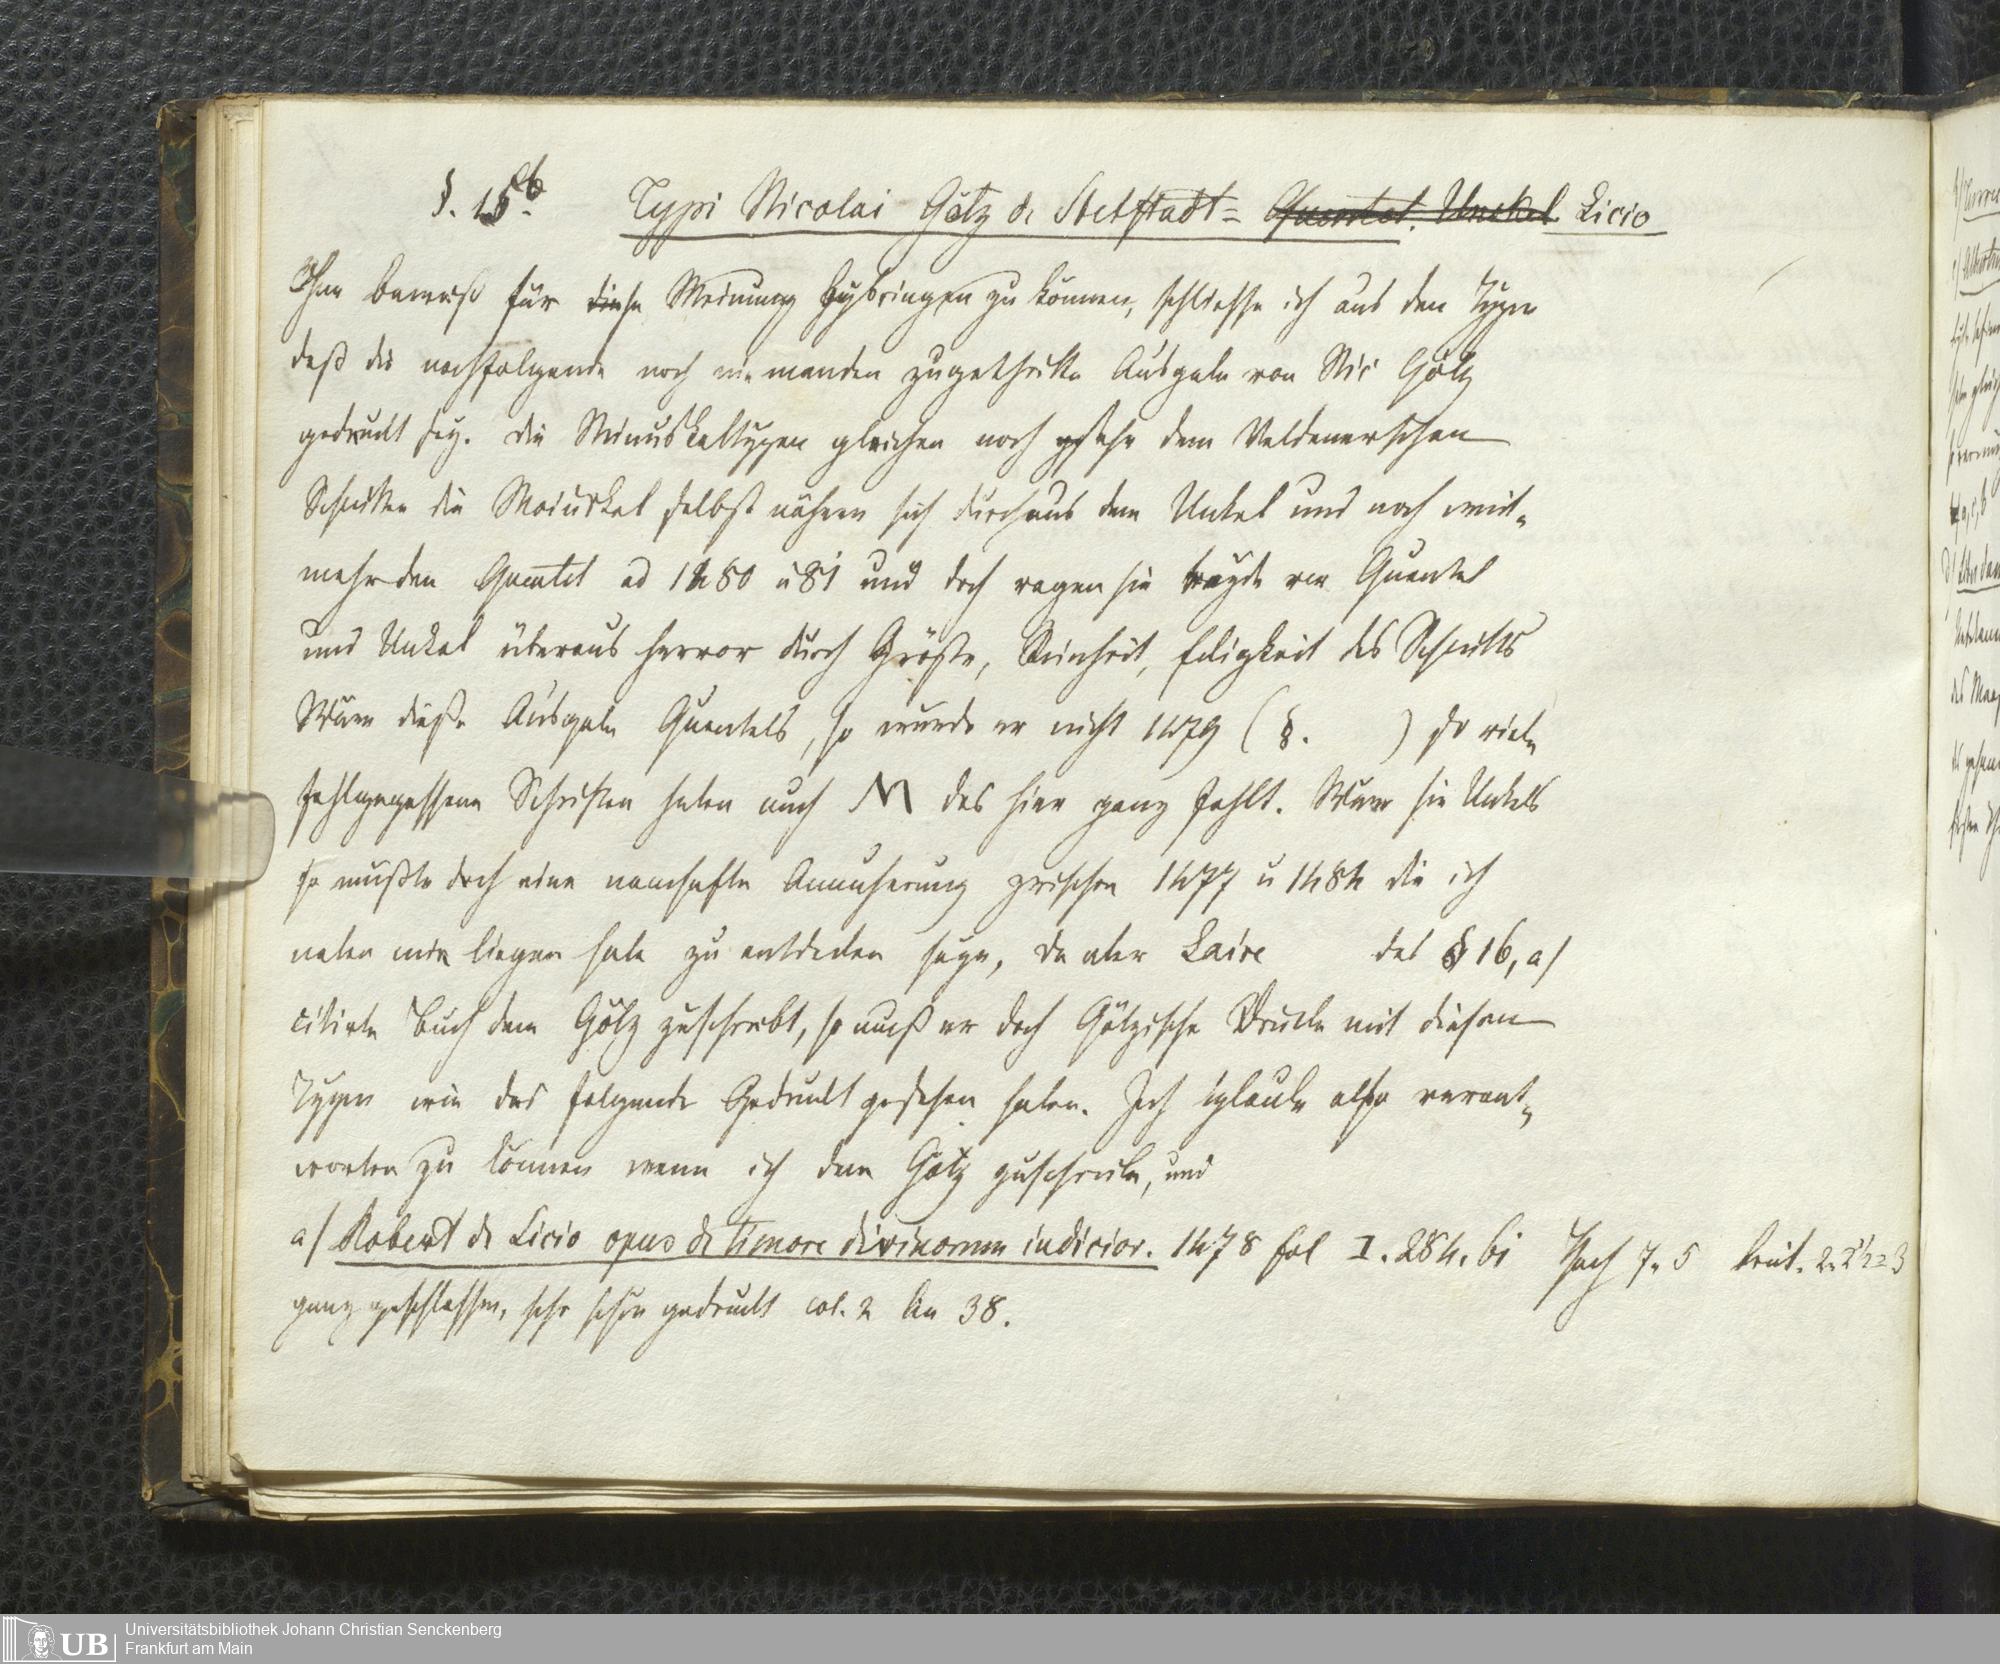 §. 15b. Typi Nicolai Götz de Sletstadt = Quentel. Unckel. Licio
Ohne beweiß für diese Meinung beybringen zu können, schliesse ich aus den Typen
daß die nachfolgende noch niemanden zugetheilte Ausgabe von Nic Götz
gedruckt sey. Die Minuskeltypen gleichen noch sehr dem Veldenerschen
Schnitte die Majuskel selbst nähern sich durchaus dem Unkel und noch viel-
mehr den Quentel ad 1480 u 81 und doch ragen sie beyde vor Quentel
und Unkel überaus hervor durch Größe, Reinheit, des Schnitts
Wäre diese Ausgabe Quentels, so wurde er nicht 1479 (§. ) so viele
fehlgegossene Schriften haben auch M das hier ganz fehlt. Wäre sie Unkels
so mußte doch eine namhafte Annäherung zwischen 1477 u 1484 die ich
neben mir liegen habe zu entdecken seyn, da aber Laire das § 16, a/
citirte Buch dem Götz zuschreibt, so muß er doch Götzische Drucke mit diesen
Typen wie das folgende Gedruckt gesehen haben. Ich glaube also verant-
worten zu können wenn ich dem Götz zuschreibe, und
a/ Robert de Licio opus de timore divinorum iudicior. 1478 fol I. 284. bi 7. 5 2. 2 1/2 = 3
ganz geschlossen, sehr schön gedruckt col. 2 lin 38.
§/
a/ Albertus
Universitätsbibliothek Johann Christian Senckenberg
Frankfurt am Main
UB